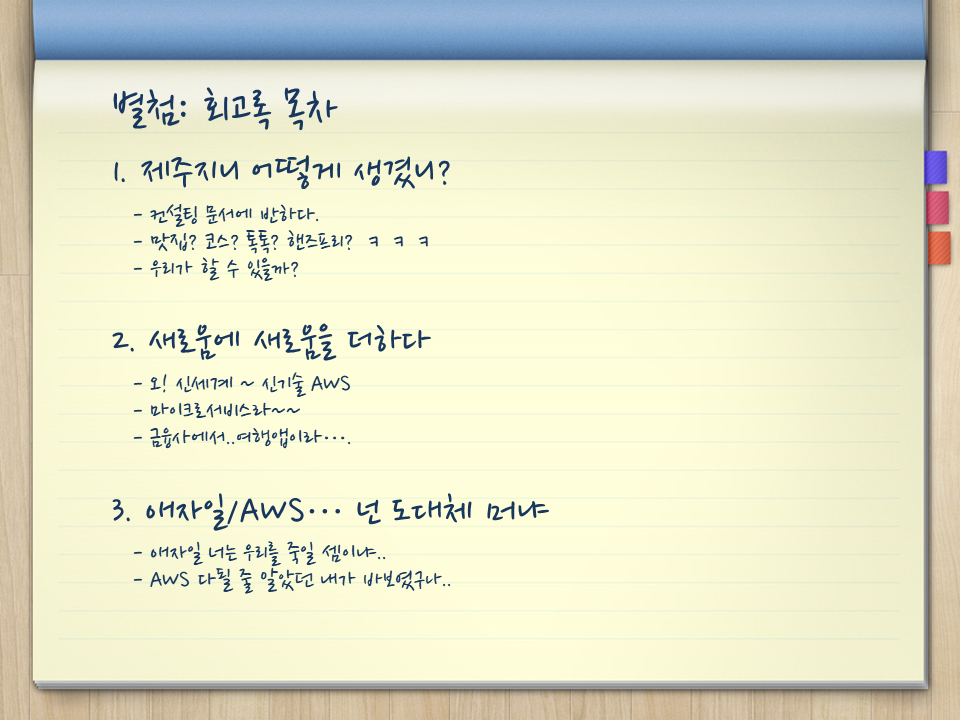 별첨: 회고록 목차
1. 제주지니 어떻게 생겼니?
- 컨설팅 문서에 반하다.
- 맛집? 코스? 톡톡? 핸즈프리? ㅋ ㅋ ㅋ
- 우리가 할 수 있을까?
2. 새로움에 새로움을 더하다
- 오! 신세계 ~ 신기술 AWS
- 마이크로서비스라~~
- 금융사에서..여행앱이라….
3. 애자일/AWS… 넌 도대체 머냐
- 애자일 너는 우리를 죽일 셈이냐..
- AWS 다될 줄 알았던 내가 바보였구나..